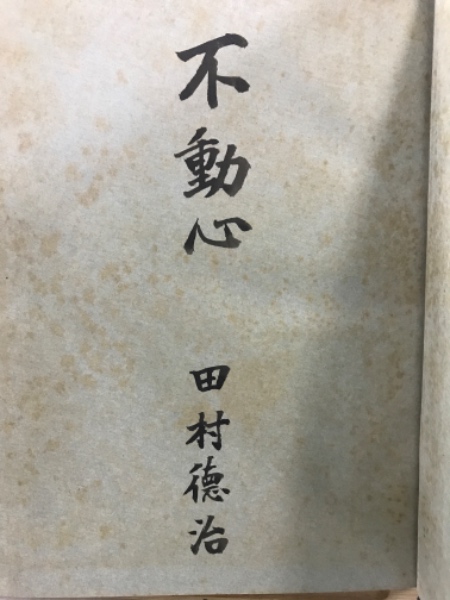 不動心
田村徳治